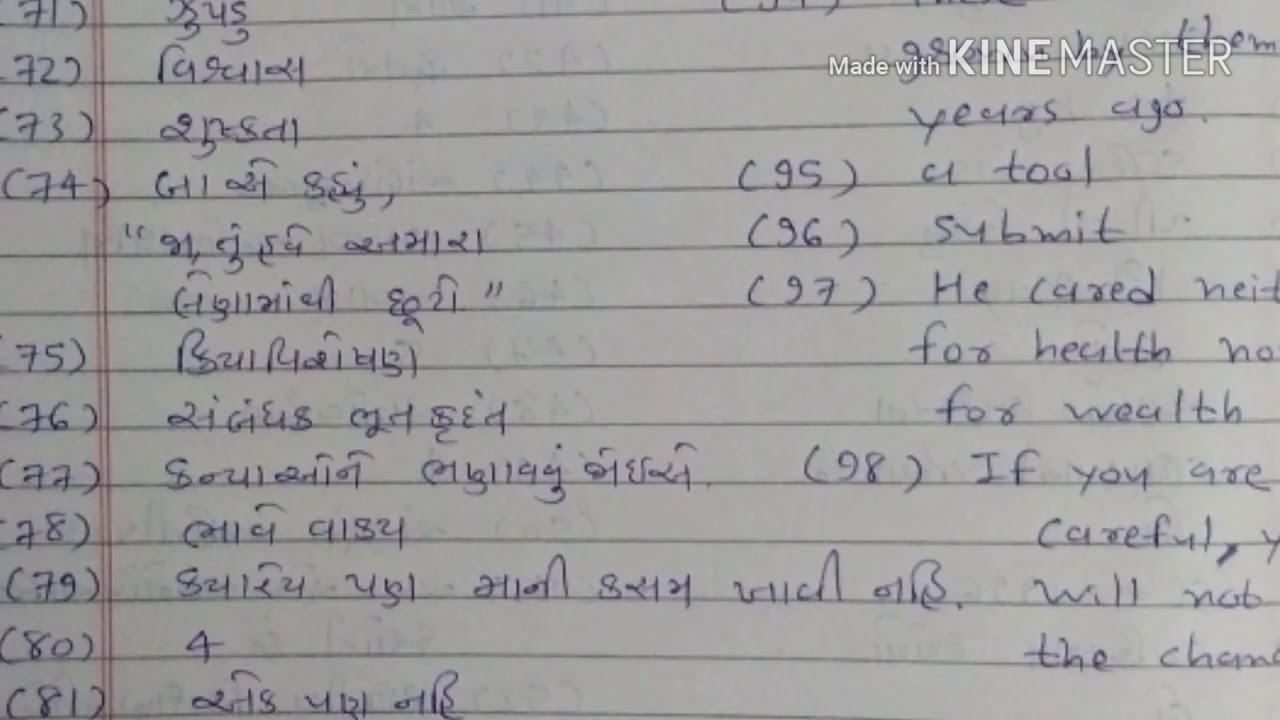 (71) ઝુંપડું
(72) વિશ્વાસ
(73) શુષ્કતા
(74) બાએ કહ્યું,
"જા, તું હવે અમારા
લેણામાંથી છૂટી"
(75) ક્રિયાવિશેષણ
(76) સંબંધક ભૂત કૃદંત
(77) કન્યાઓને ભણાવવું જોઈએ.
(78) ભાવે વાક્ય
(79) ક્યારેય પણ માની કસમ ખાવી નહિ.
(80) 4
(81) એક પણ નહિ
them
years ago.
(95) a tool
(96) submit
(97) He cared neit
for health no
for wealth
(98) If you are
careful, y
will not
the chan
Made with KINEMASTER